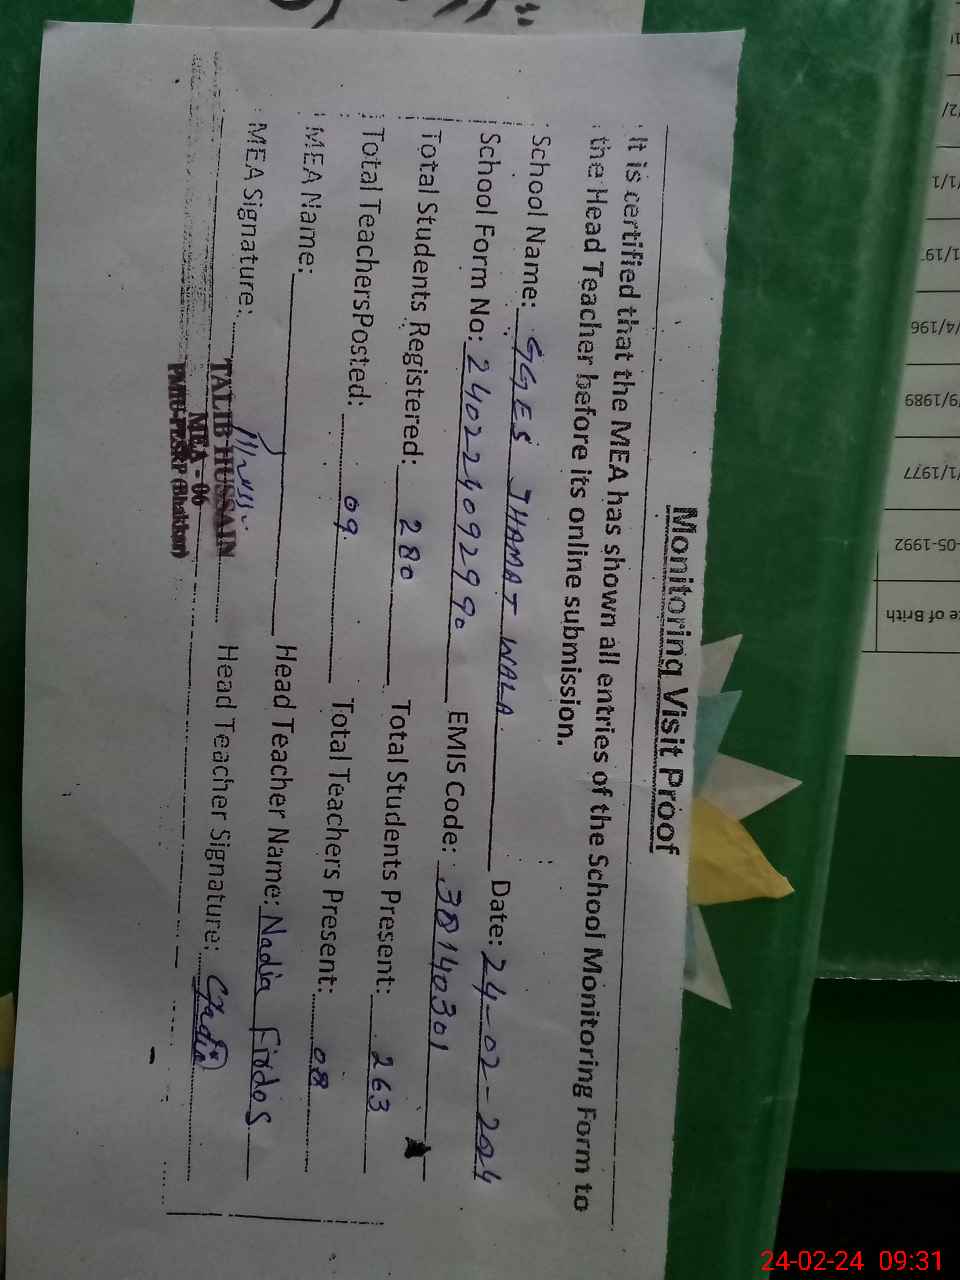 Monitoring Visit Proof
It is certified that the MEA has shown all entries of the School Monitoring Form to
the Head Teacher before its online submission.
School Name: GGES JHAMAT WALA Date: 24-02-2024
School Form No: 240224092990 EMIS Code: 38140301
Total Students Registered: 280 Total Students Present: 263
Total TeachersPosted: 09 Total Teachers Present: 08
MEA Name: Head Teacher Name: Nadia Firdos
MEA Signature: Head Teacher Signature: Nadia
TALIB HUSSAIN
MEA - 06
PMIU-PESRP (Bhakkar)
e of Brith
-05-1992
1/1977
9/1989
4/196
1/19
1/1
24-02-24 09:31